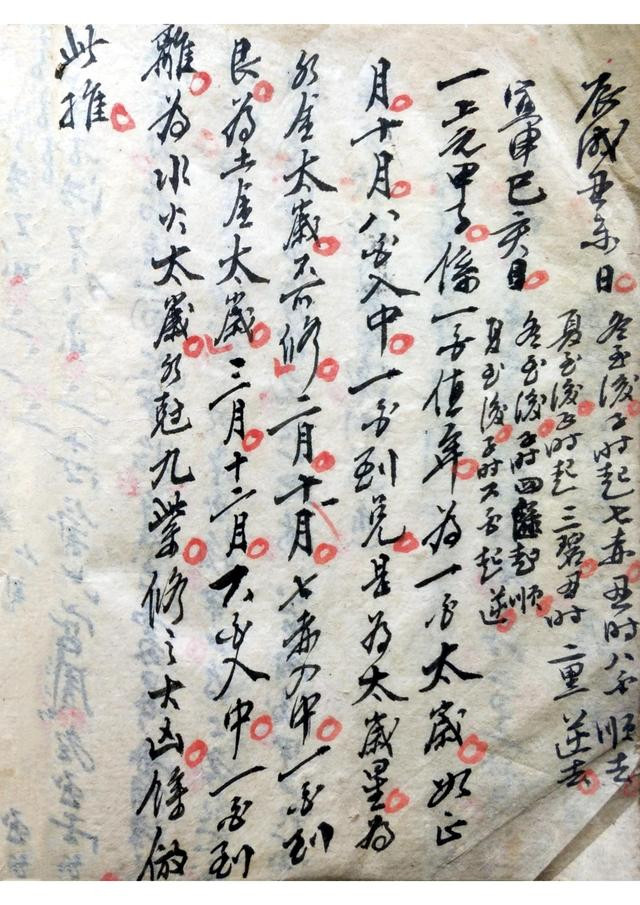 辰戌丑未日
冬至後子时起七赤丑时八白順去
夏至後子时起三碧丑时二黑逆去
寅申巳亥日
冬至後子时四緑起順
夏至後子时六白起逆
一上元甲子係一白值年為一白太歲如正
月十月八白入中一白到兑是為太歲星為
水金太歲不可修二月十一月七赤入中一白到
艮為土金太歲三月十二月六白入中一白到
離為水火太歲水尅九紫修之大凶餘倣
此推